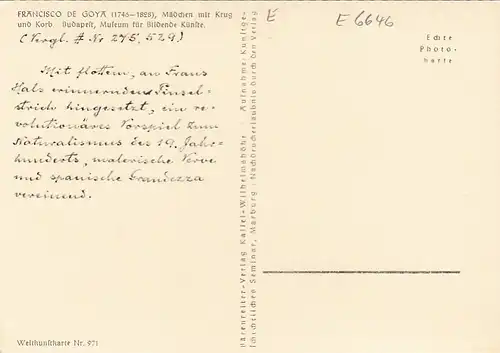 FRANCISCO DE GOYA (1746—1828), Mädchen mit Krug
und Korb. Budapest, Museum für Bildende Künste.
(Vergl. # No 275, 529)
Mit flottem, an Frans
Hals erinnerndem Pinsel-
strich hingesetzt, ein re-
volutionäres Vorspiel zum
Naturalismus des 19. Jahr-
hunderts, malerische Verve
und spanische Grandezza
vereinend.
Weltkunstkarte Nr. 971
Bärenreiter-Verlag Kassel-Wilhelmshöhe · Aufnahme: Kunstge-
schichtliches Seminar, Marburg · Nachdruckerlaubnis durch den Verlag
E
E 6646
Echte
Photo-
karte